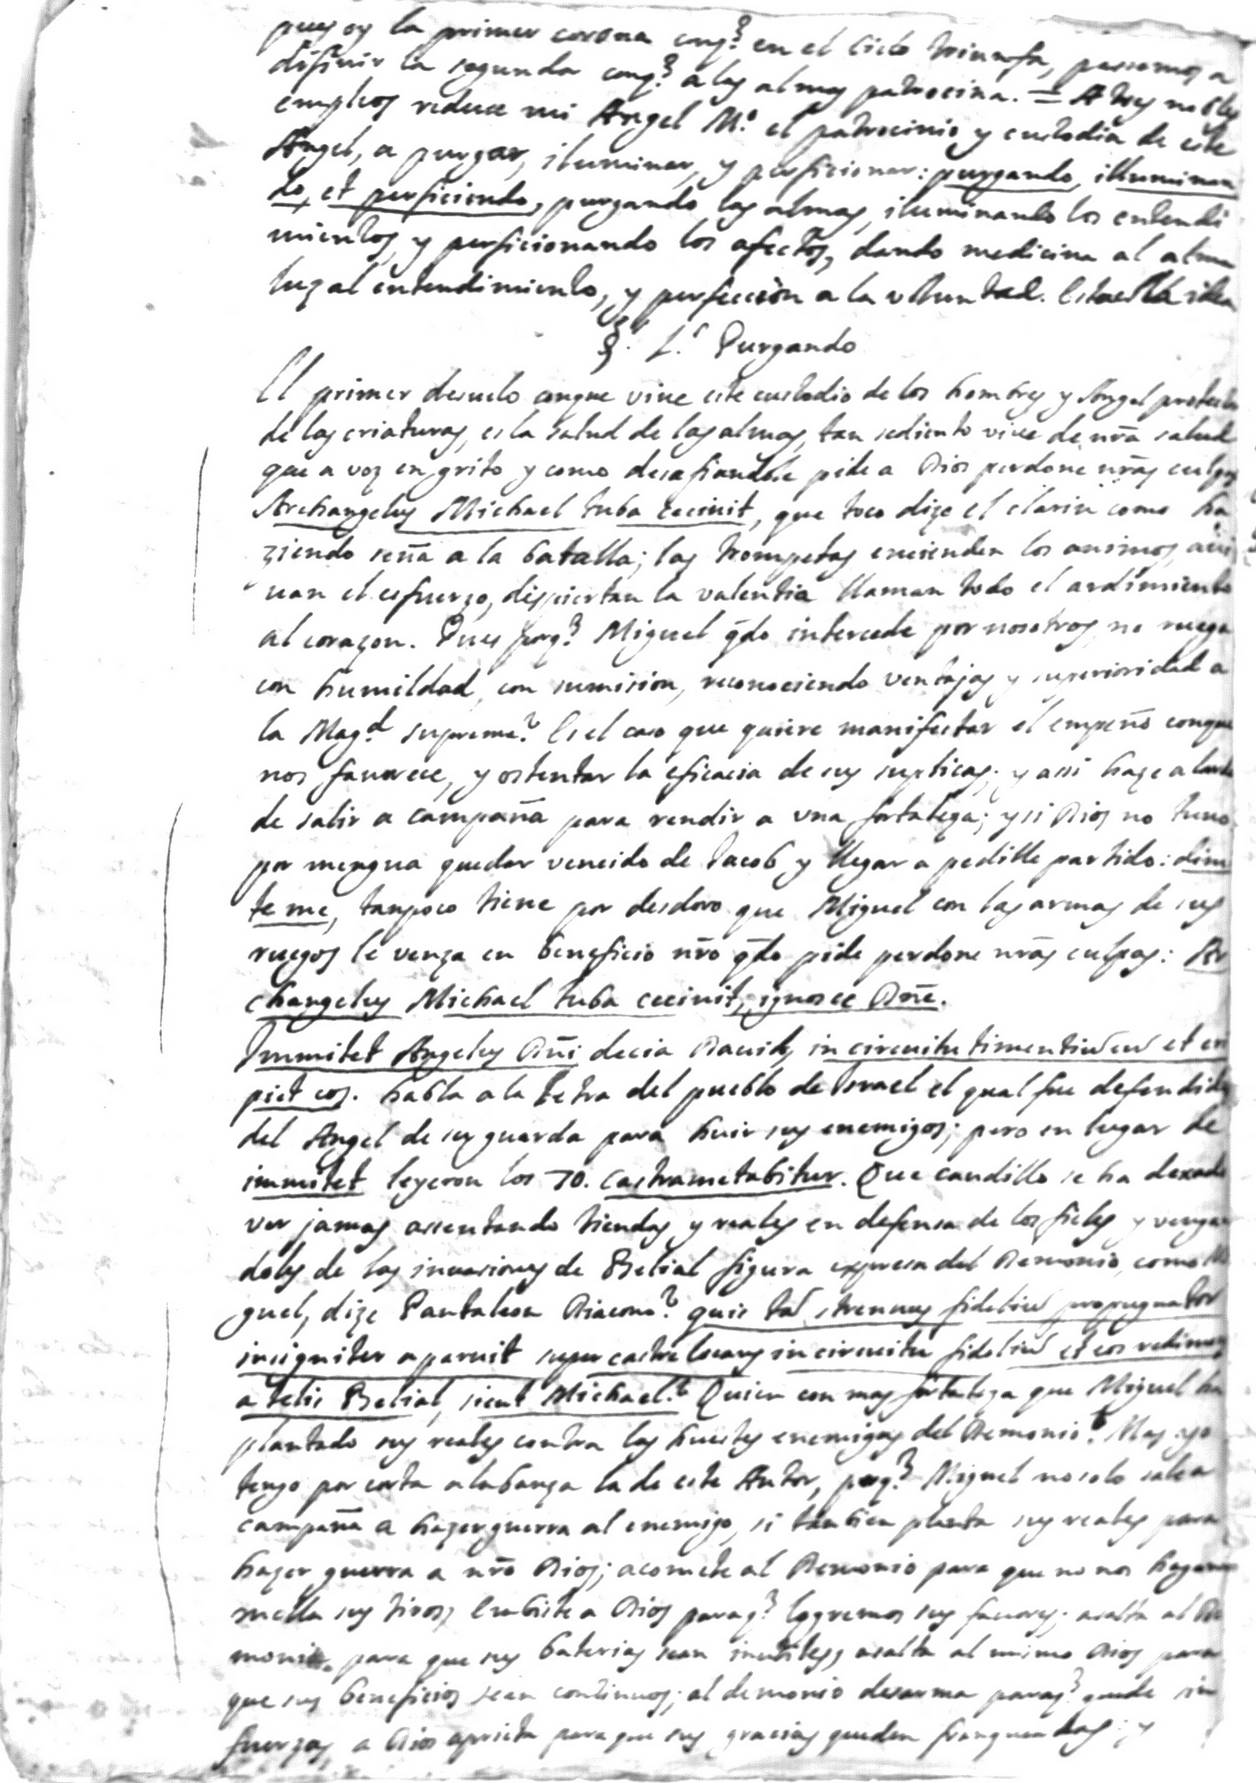 pues oy la primer corona conq.e en el Cielo triunfa, passemos a
difinir la segunda conq.e a las almas patrocina. = A tres nobles
empleos reduce mi Angel M.o el patrocinio y custodia de este
Angel, a purgar, iluminar, y perficionar: purgando, illuminan
do, et perficiendo, purgando las almas, iluminando los entendi
mientos, y perficionando los afectos, dando medicina al alma
luz al entendimiento, y perfeccion a la voluntad. Esta es la idea
§. 1.º Purgando
El primer desuelo conque viue este custodio de los hombres y Angel protector
de las criaturas, es la salud de las almas, tan sediento viue de nrã salud
que a voz en grito y como desafiandole pide a Dios perdone nrãs culpas
Archangelus Michael tuba cecinit, que toco dize el clarin como ha
ziendo señã a la batalla; las trompetas encienden los animos, aui
uan el esfuerzo, despiertan la valentia llaman todo el ardimiento
al coraçon. Pues porq.e Miguel q̃do intercede por nosotros, no ruega
con humildad, con sumision, reconociendo ventajas y superioridad a
la Mag.d suprema? Es el caso que quiere manifestar el empeño conque
nos favorece, y ostentar la eficacia de sus suplicas; y assi haze alarde
de salir a campaña para rendir a vna fortaleza; y si Dios no tuuo
por mengua quedar vencido de Jacob y llegar a pedille partido: dimi
te me, tampoco tiene por desdoro que Miguel con las armas de sus
ruegos le venza en beneficio nrõ q̃do pide perdone nrãs culpas: Ar
changelus Michael tuba cecinit, ignosce Dñe.
Immitet Angelus Dñi decia Dauid, in circuitu timentiũ eũ et eri
piet eos. habla a la letra del pueblo de Israel el qual fue defendido
del Angel de su guarda para huir sus enemigos; pero en lugar de
immitet leyeron los 70. castrametabitur. Que caudillo se ha dexado
ver jamas assentando tiendas y reales en defensa de los fieles y vengan
doles de las inuasiones de Belial figura expresa del Demonio, como Mi
guel, dize Pantaleon Diacono? quis tã strenuus fideliũ propugnator
insigniter aparuit super castra locans in circuitu fideliũ et eos redimens
a telis Belial, sicut Michael? Quien con mas fortaleza que Miguel ha
plantado sus reales contra las huestes enemigas del Demonio? Mas yo
tengo por corta alabança la de este Autor, porq.e Miguel no solo sale a
campaña a hazer guerra al enemigo, si tambien planta sus reales para
hazer guerra a nrõ Dios; acomete al Demonio para que no nos hagan
mella sus tiros, enbiste a Dios paraq.e logremos sus fauores; asalta al De
monio para que sus baterias sean inutiles, asalta al mismo Dios para
que sus beneficios sean continuos; al demonio desarma paraq.e quede sin
fuerzas, a Dios aprieta para que sus gracias queden franqueadas; y